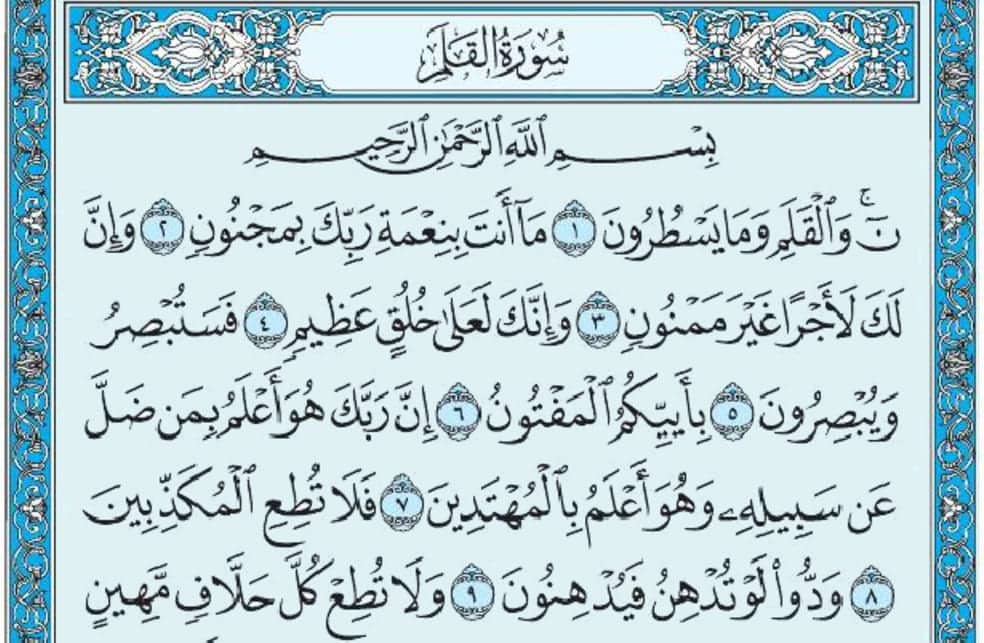 سُورَةُ القَلَمِ
بِسْمِ ٱللَّهِ ٱلرَّحْمَٰنِ ٱلرَّحِيمِ
نٓۚ وَٱلْقَلَمِ وَمَا يَسْطُرُونَ ١ مَآ أَنتَ بِنِعْمَةِ رَبِّكَ بِمَجْنُونٍ ٢ وَإِنَّ
لَكَ لَأَجْرًا غَيْرَ مَمْنُونٍ ٣ وَإِنَّكَ لَعَلَىٰ خُلُقٍ عَظِيمٍ ٤ فَسَتُبْصِرُ
وَيُبْصِرُونَ ٥ بِأَييِّكُمُ ٱلْمَفْتُونُ ٦ إِنَّ رَبَّكَ هُوَ أَعْلَمُ بِمَن ضَلَّ
عَن سَبِيلِهِۦ وَهُوَ أَعْلَمُ بِٱلْمُهْتَدِينَ ٧ فَلَا تُطِعِ ٱلْمُكَذِّبِينَ
٨ وَدُّوا۟ لَوْ تُدْهِنُ فَيُدْهِنُونَ ٩ وَلَا تُطِعْ كُلَّ حَلَّافٍ مَّهِينٍ